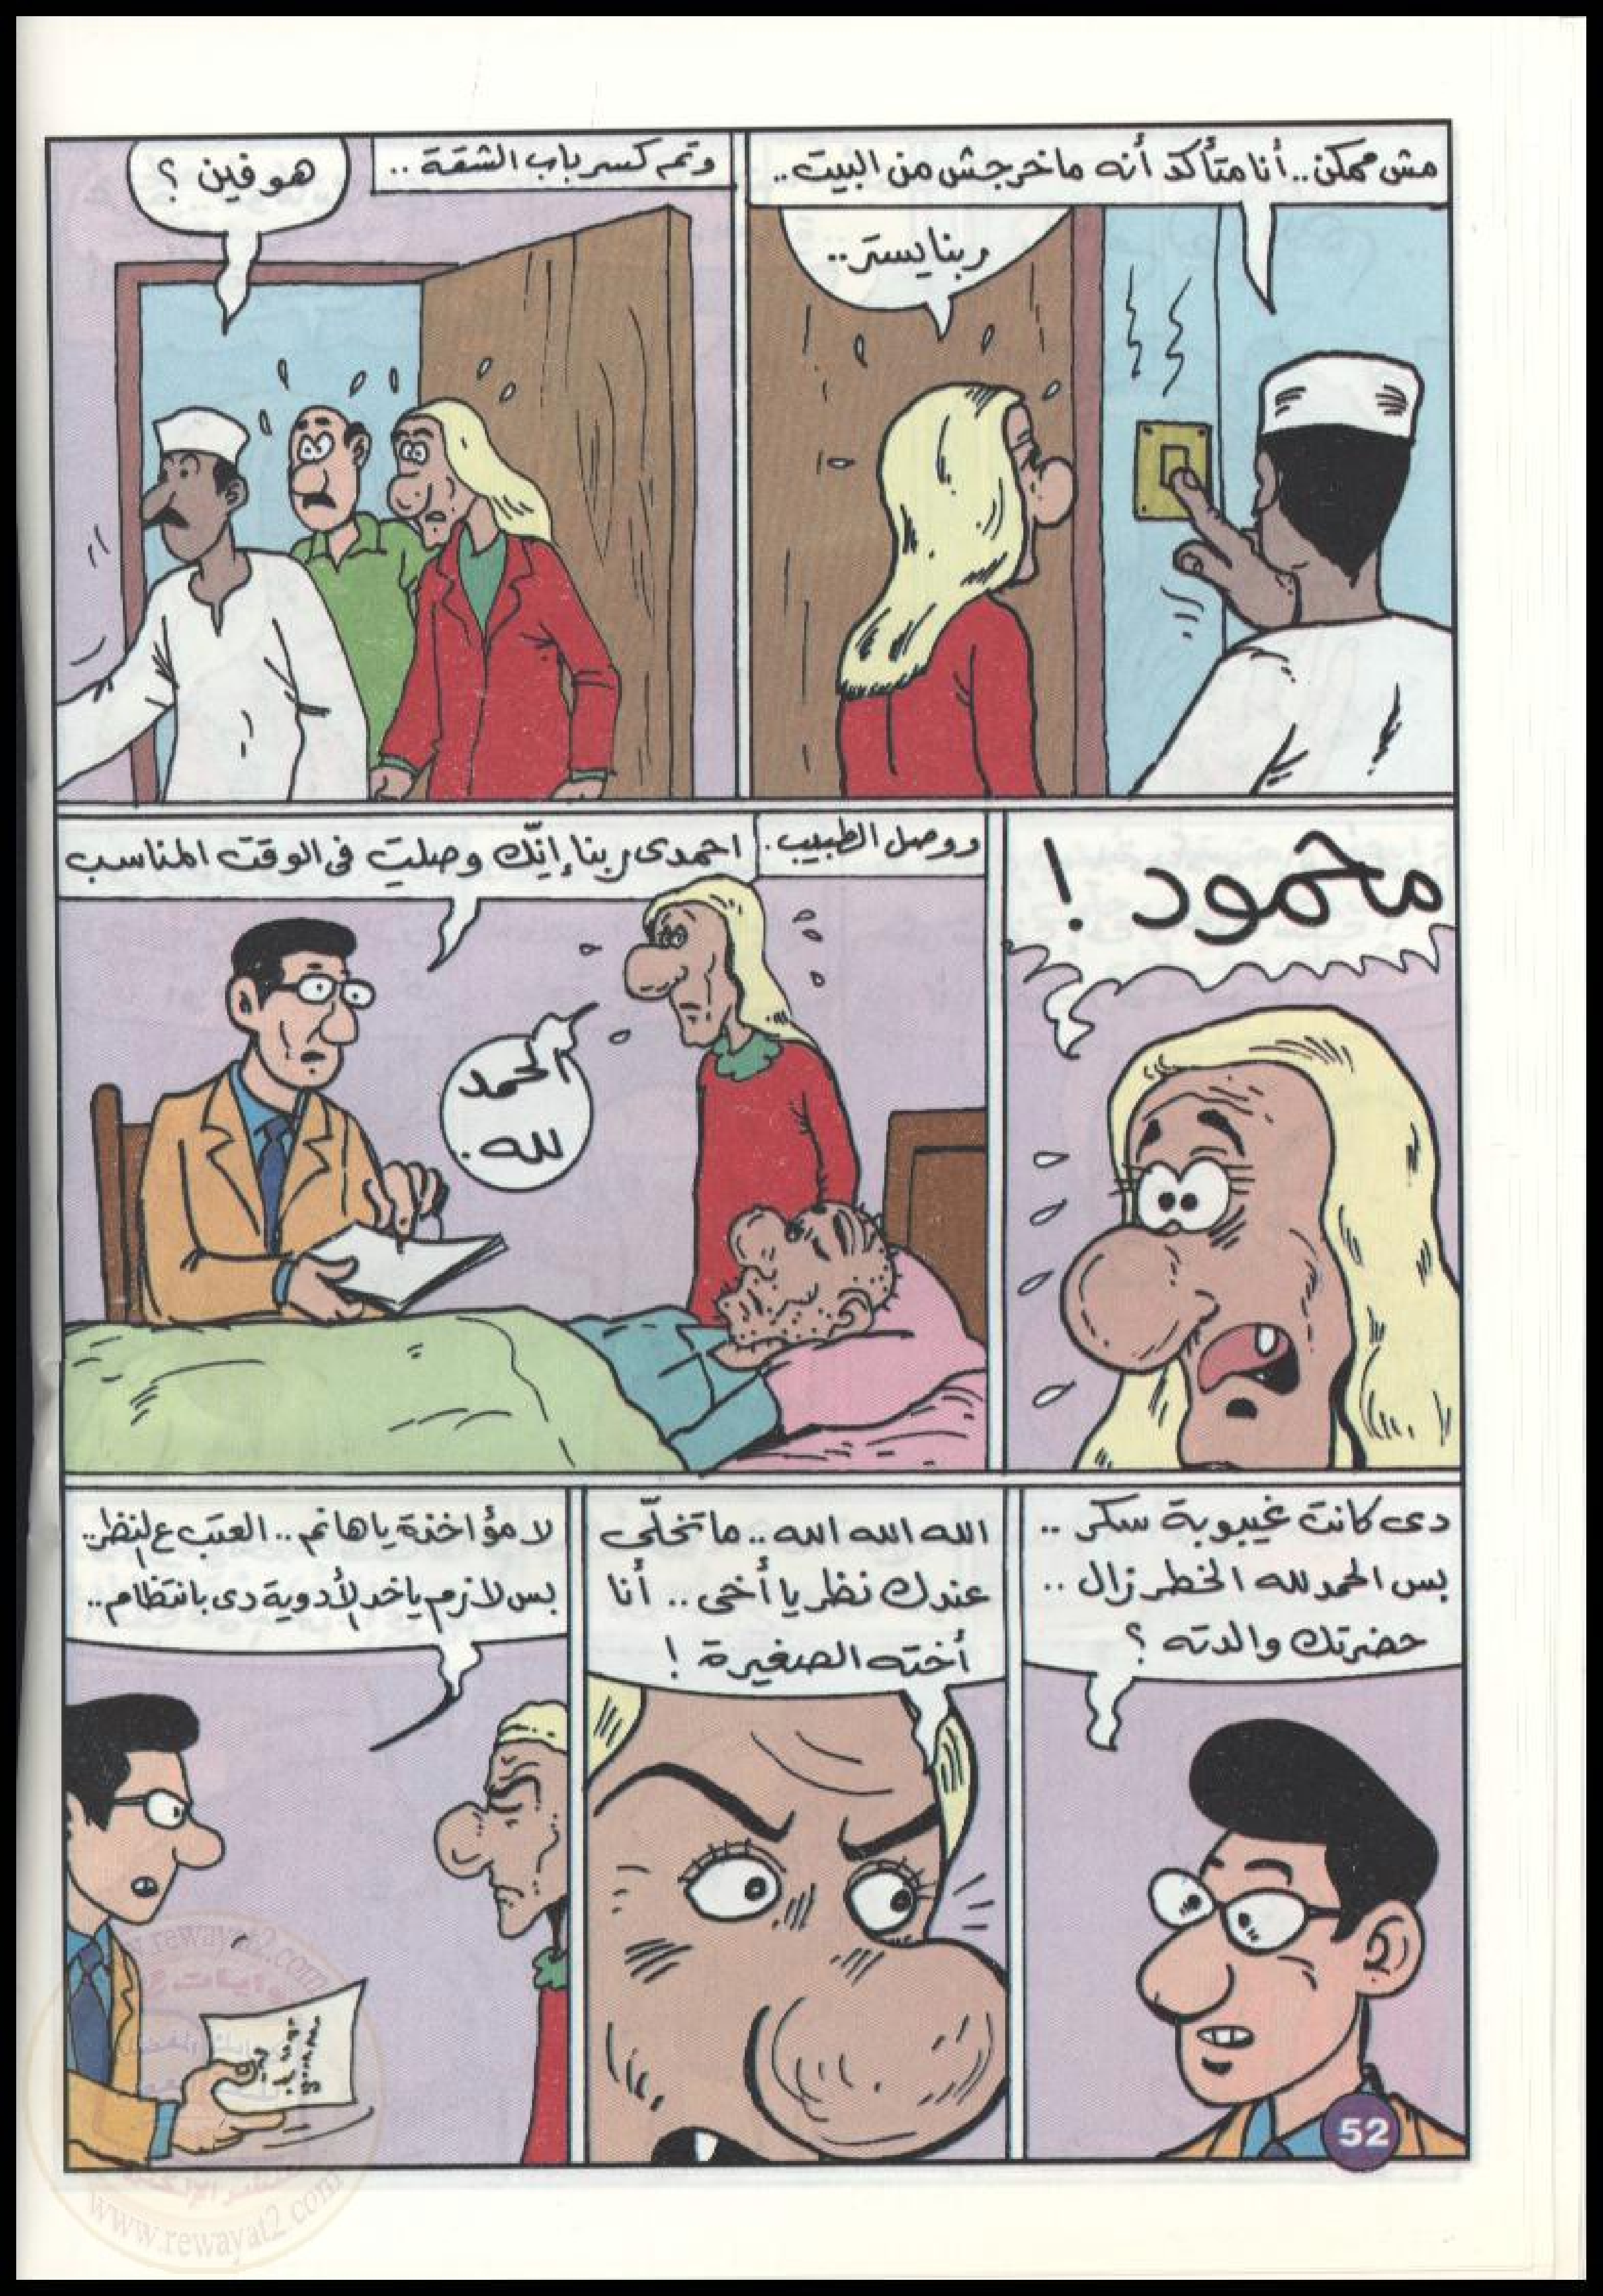 مش ممكن.. أنا متأكد أنه ماخرجش من البيت..
ربنا يستر..
وتم كسر باب الشقة..
هو فين؟
محمود!
ووصل الطبيب.
احمدى ربنا إنّك وصلتِ فى الوقت المناسب
الحمد
لله.
دى كانت غيبوبة سكر..
بس الحمد لله الخطر زال..
حضرتك والدته؟
الله الله الله.. ماتخلّى
عندك نظر يا أخى.. أنا
أخته الصغيرة!
لا مؤاخذة يا هانم.. العتب ع لنظر..
بس لازم ياخد الأدوية دى بانتظام..
52
www.rewayat2.com